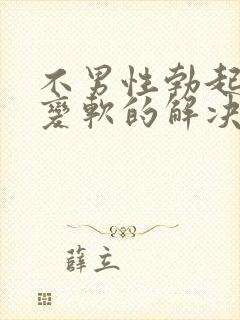 不男性勃起
變軟的解决
薛立